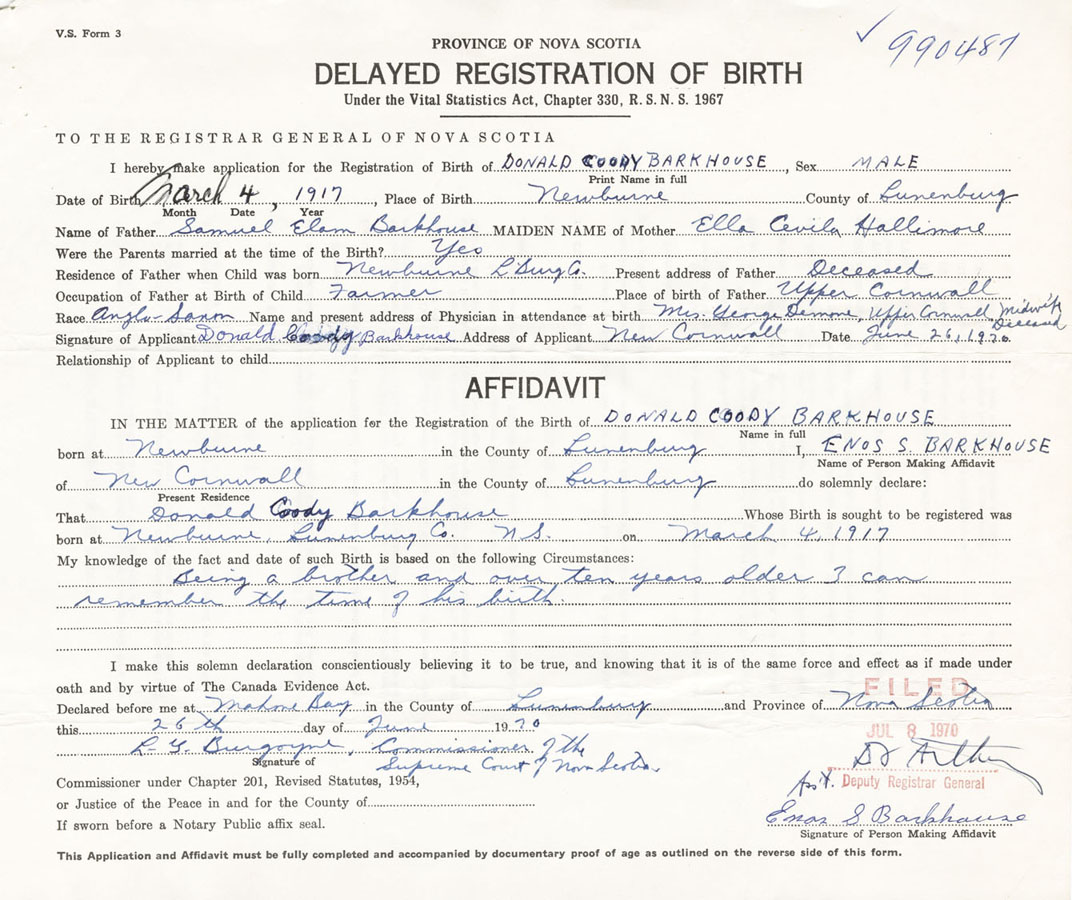 V.S. Form 3
✓ 990487
PROVINCE OF NOVA SCOTIA
DELAYED REGISTRATION OF BIRTH
Under the Vital Statistics Act, Chapter 330, R. S. N. S. 1967
TO THE REGISTRAR GENERAL OF NOVA SCOTIA
I hereby make application for the Registration of Birth of DONALD COODY BARKHOUSE, Sex MALE
Print Name in full
Date of Birth March 4, 1917, Place of Birth Newburne County of Lunenburg
Month Date Year
Name of Father Samuel Elam Barkhouse MAIDEN NAME of Mother Ella Cevila Hallimore
Were the Parents married at the time of the Birth? Yes
Residence of Father when Child was born Newburne L'Burg Co. Present address of Father Deceased
Occupation of Father at Birth of Child Farmer Place of birth of Father Upper Cornwall
Race Anglo-Saxon Name and present address of Physician in attendance at birth Mrs. George Demone, Upper Cornwall, Midwife Deceased
Signature of Applicant Donald Coody Barkhouse Address of Applicant New Cornwall Date June 26, 1970.
Relationship of Applicant to child
AFFIDAVIT
IN THE MATTER of the application for the Registration of the Birth of DONALD COODY BARKHOUSE
Name in full
born at Newburne in the County of Lunenburg I, ENOS S. BARKHOUSE
Name of Person Making Affidavit
of New Cornwall in the County of Lunenburg do solemnly declare:
Present Residence
That Donald Coody Barkhouse Whose Birth is sought to be registered was
born at Newburne, Lunenburg Co. N.S. on March 4, 1917
My knowledge of the fact and date of such Birth is based on the following Circumstances:
Being a brother and over ten years older I can
remember the time of his birth.
I make this solemn declaration conscientiously believing it to be true, and knowing that it is of the same force and effect as if made under
oath and by virtue of The Canada Evidence Act.
FILED
Declared before me at Mahone Bay in the County of Lunenburg and Province of Nova Scotia
this 26th day of June 1970
JUL 8 1970
R. G. Burgoyne, Commissioner of the
Signature of Supreme Court of Nova Scotia
Commissioner under Chapter 201, Revised Statutes, 1954,
Ass't. Deputy Registrar General
or Justice of the Peace in and for the County of
Enos S Barkhouse
If sworn before a Notary Public affix seal.
Signature of Person Making Affidavit
This Application and Affidavit must be fully completed and accompanied by documentary proof of age as outlined on the reverse side of this form.